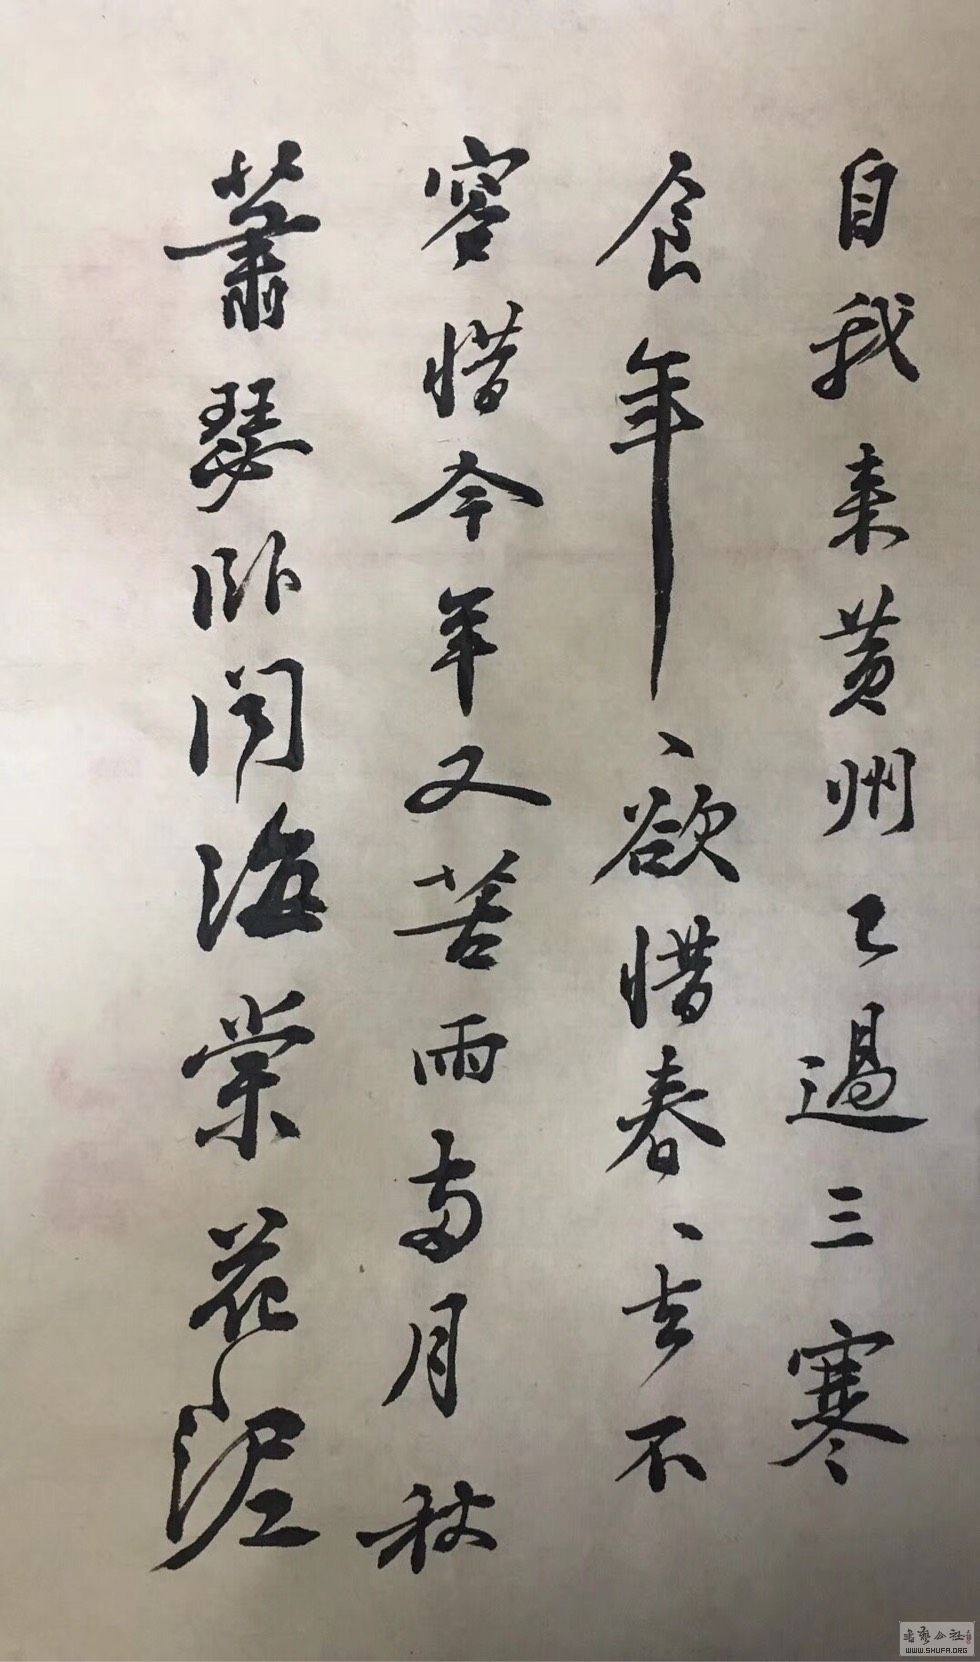 自我来黄州已过三寒
食年、欲惜春、去不
容惜今年又苦雨两月秋
萧瑟卧闻海棠花泥
书艺公社
WWW.SHUFA.ORG